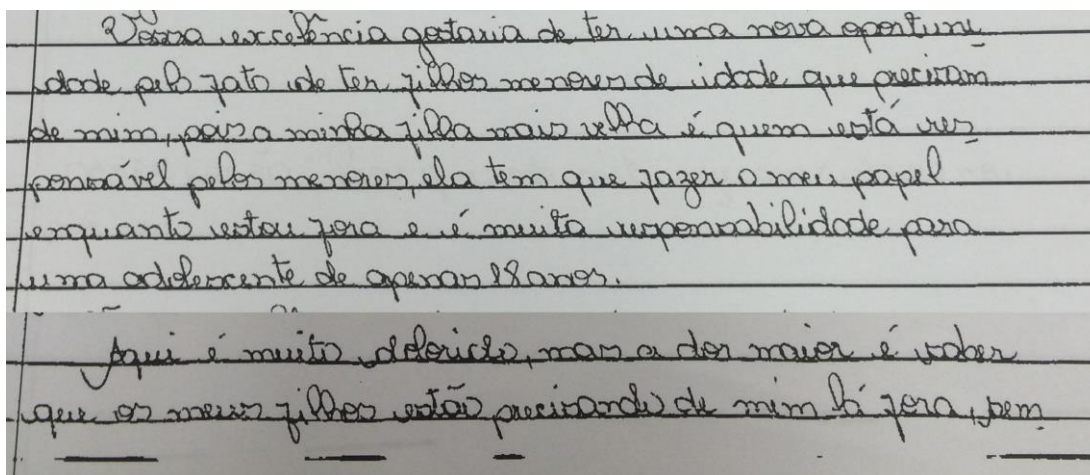 Vossa excelência gostaria de ter uma nova oportuni
dade pelo fato de ter filhos menores de idade que precisam
de mim, pois a minha filha mais velha é quem está res
ponsável pelos menores, ela tem que fazer o meu papel
enquanto estou fora e é muita responsabilidade para
uma adolescente de apenas 18 anos.
Aqui é muito dolorido, mas a dor maior é saber
que os meus filhos estão precisando de mim lá fora, sem